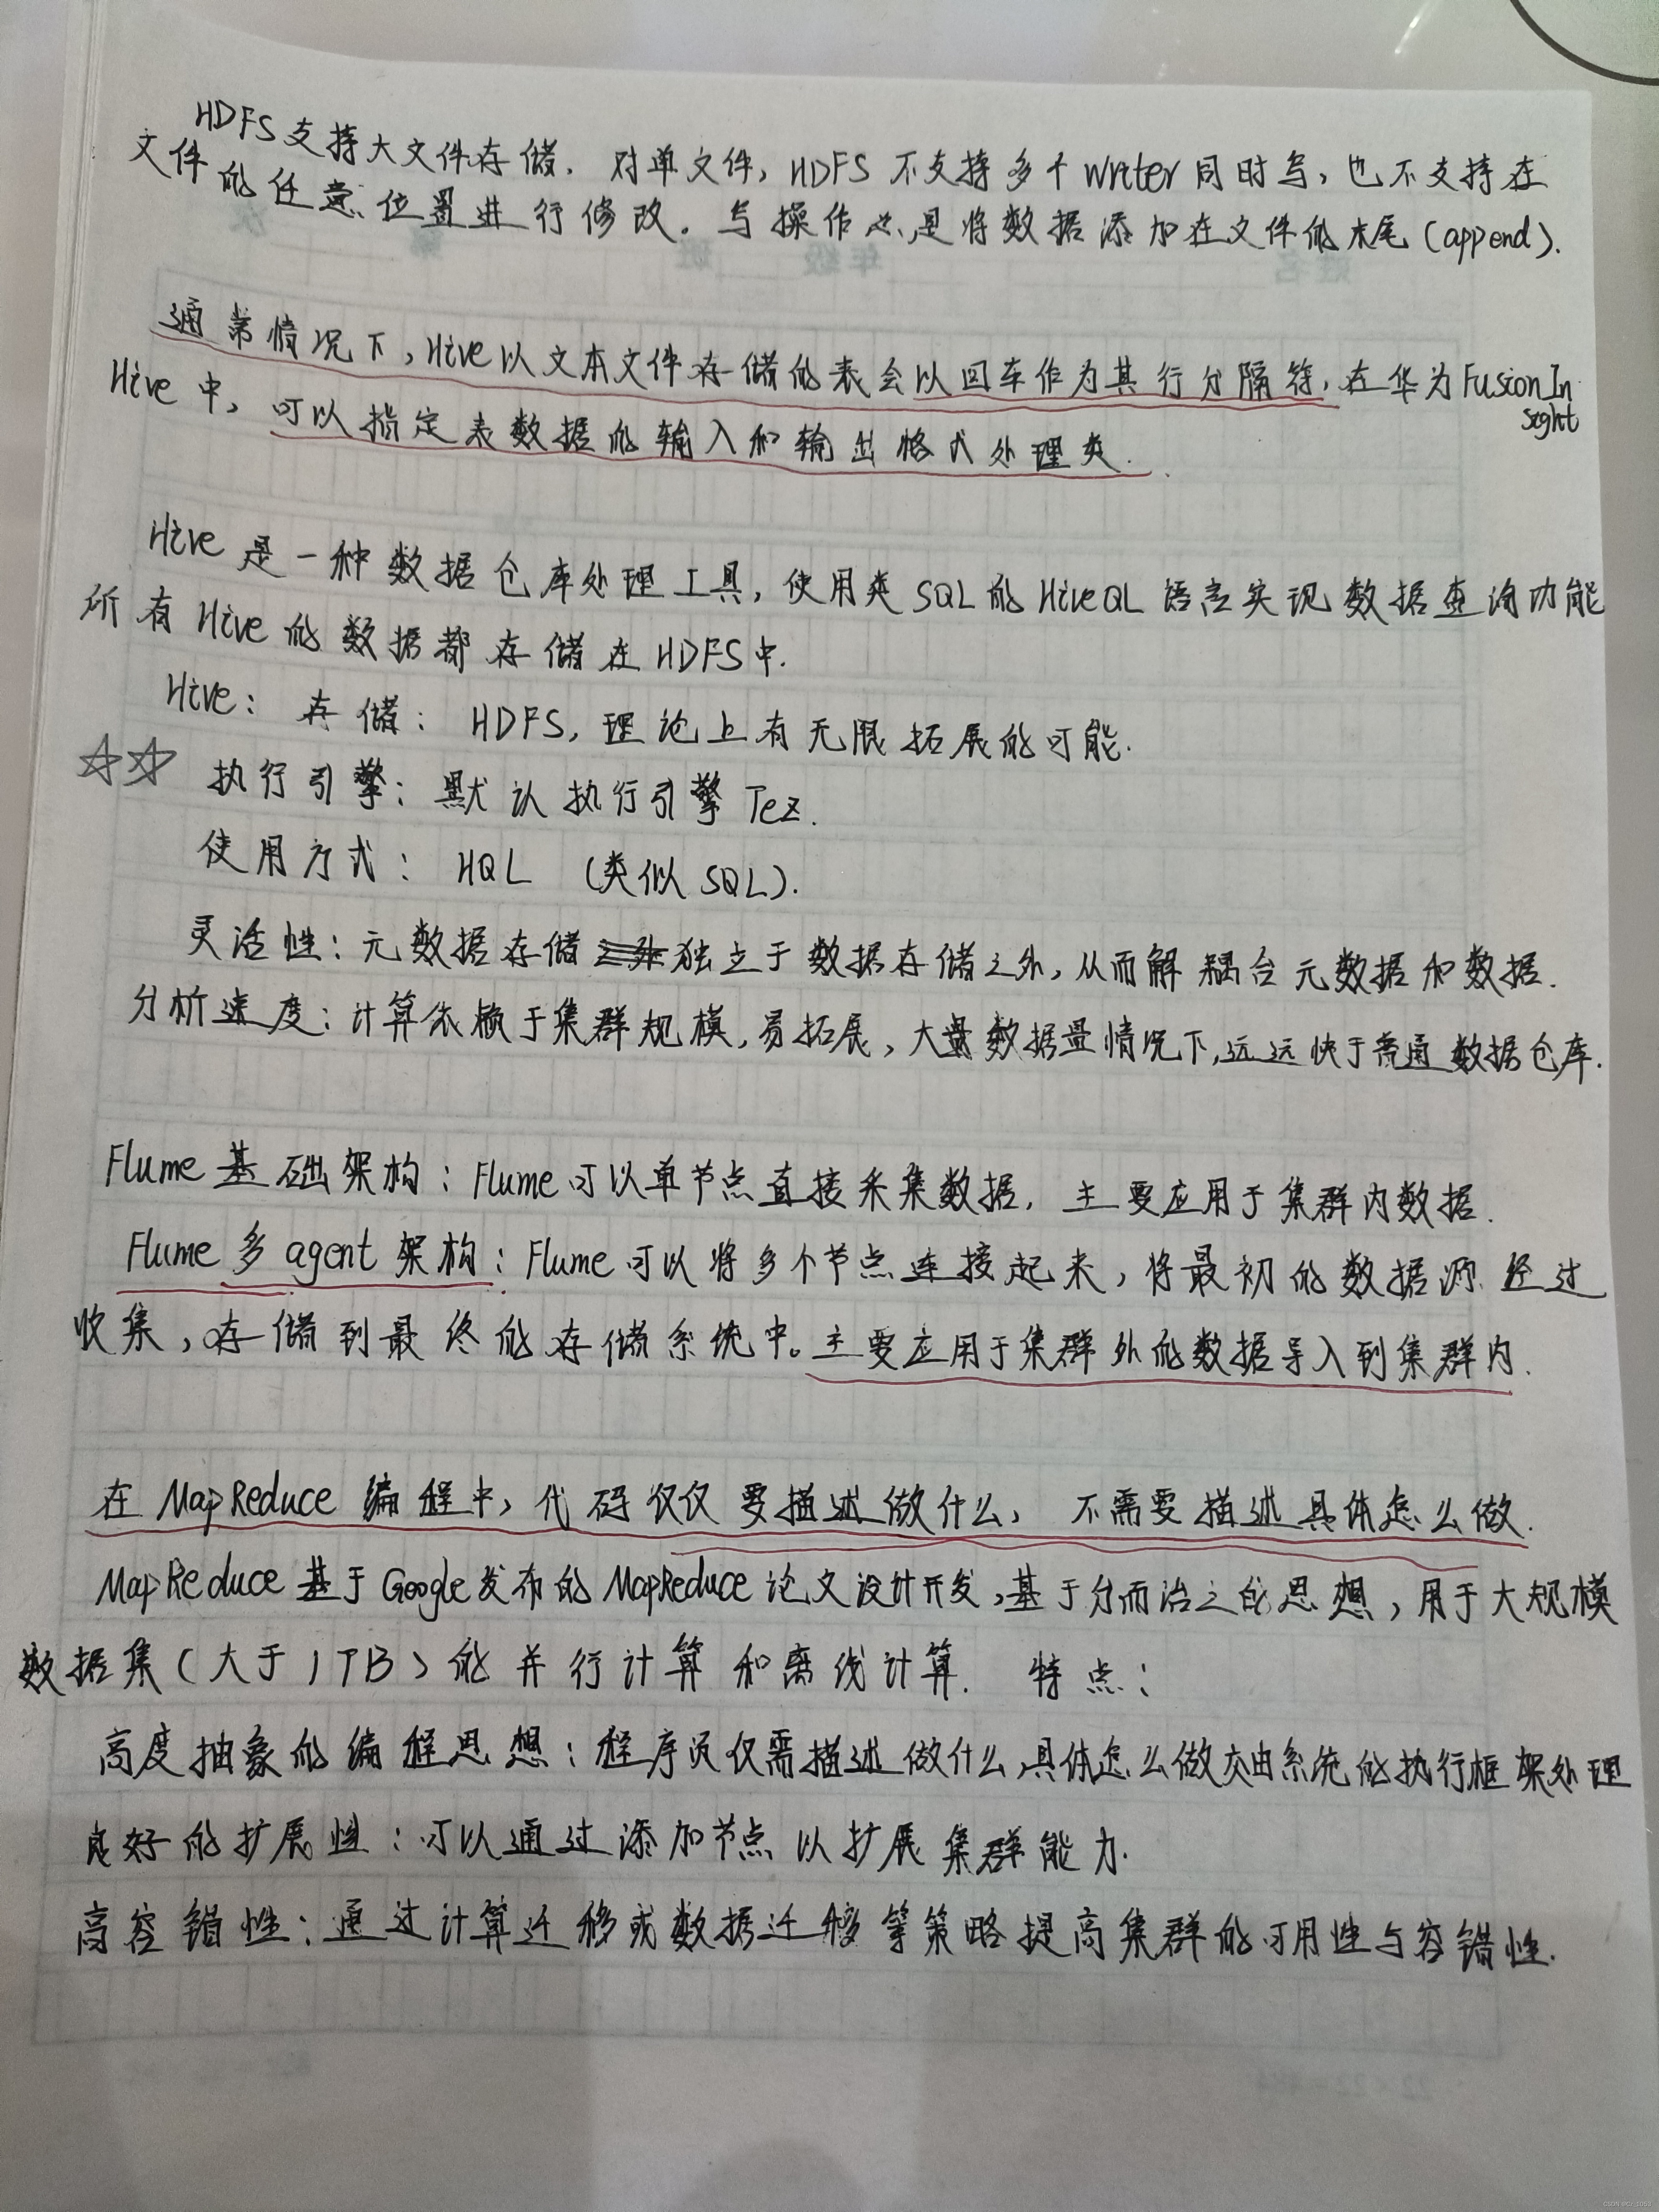 HDFS支持大文件存储. 对单文件, HDFS 不支持多个 writer 同时写, 也不支持在
文件的任意位置进行修改. 写操作总是将数据添加在文件的末尾 (append).
通常情况下, Hive以文本文件存储的表会以回车作为其行分隔符, 在华为FusionIn
sight
Hive 中, 可以指定表数据的输入和输出格式处理类.
Hive 是一种数据仓库处理工具, 使用类 SQL 的 HiveQL 语言实现数据查询功能
所有 Hive 的数据都存储在 HDFS中.
Hive: 存储: HDFS, 理论上有无限拓展的可能.
☆☆ 执行引擎: 默认执行引擎 Tez.
使用方式: HQL (类似 SQL).
灵活性: 元数据存储独立于数据存储之外, 从而解耦合元数据和数据.
分析速度: 计算依赖于集群规模, 易拓展, 大量数据量情况下, 远远快于普通数据仓库.
Flume 基础架构: Flume 可以单节点直接采集数据, 主要应用于集群内数据.
Flume 多 agent 架构: Flume 可以将多个节点连接起来, 将最初的数据源经过
收集, 存储到最终的存储系统中。主要应用于集群外的数据导入到集群内.
在 MapReduce 编程中, 代码仅仅要描述做什么, 不需要描述具体怎么做.
MapReduce 基于 Google发布的 MapReduce 论文设计开发, 基于分而治之的思想, 用于大规模
数据集(大于1TB)的并行计算和离线计算. 特点:
高度抽象的编程思想: 程序员仅需描述做什么, 具体怎么做交由系统的执行框架处理
良好的扩展性: 可以通过添加节点以扩展集群能力.
高容错性: 通过计算迁移或数据迁移等策略提高集群的可用性与容错性.